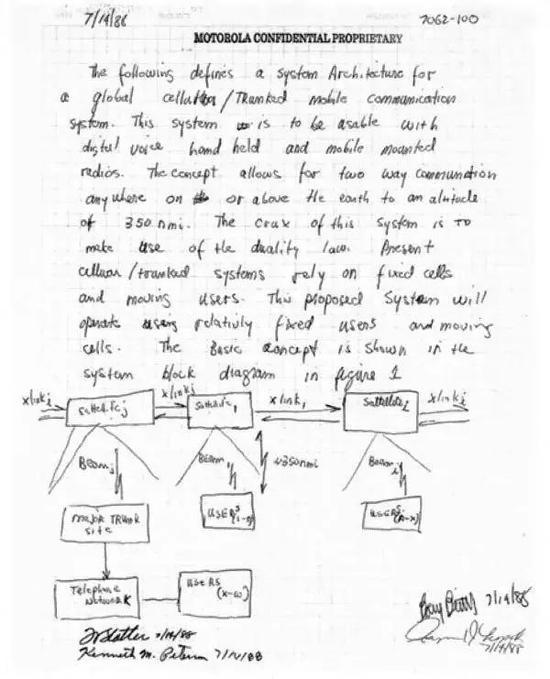 7/14/88 7062-100
MOTOROLA CONFIDENTIAL PROPRIETARY
The following defines a system Architecture for
a global cellular/Trunked mobile communication
system. This system is to be usable with
digital voice hand held and mobile mounted
radios. The concept allows for two way communation
anywhere on or above the earth to an altitude
of 350 nmi. The crux of this system is to
make use of the duality law. Present
celluar/trunked systems rely on fixed cells
and moving users. This proposed System will
operate using relativly fixed users and moving
cells. The Basic concept is shown in the
system block diagram in figure 1
xlink i xlink i xlink 1 xlink i
Satellite j Satellite 1 Satellite 2
Beam Beam ~350nmi Beam i
major TRUNK
site
USERS (1-n) USERS (n-x)
Telephone
Network
USERS
(x-w)
7/14/88
7/14/88
7/14/88
Kenneth M. Peterson 7/14/88